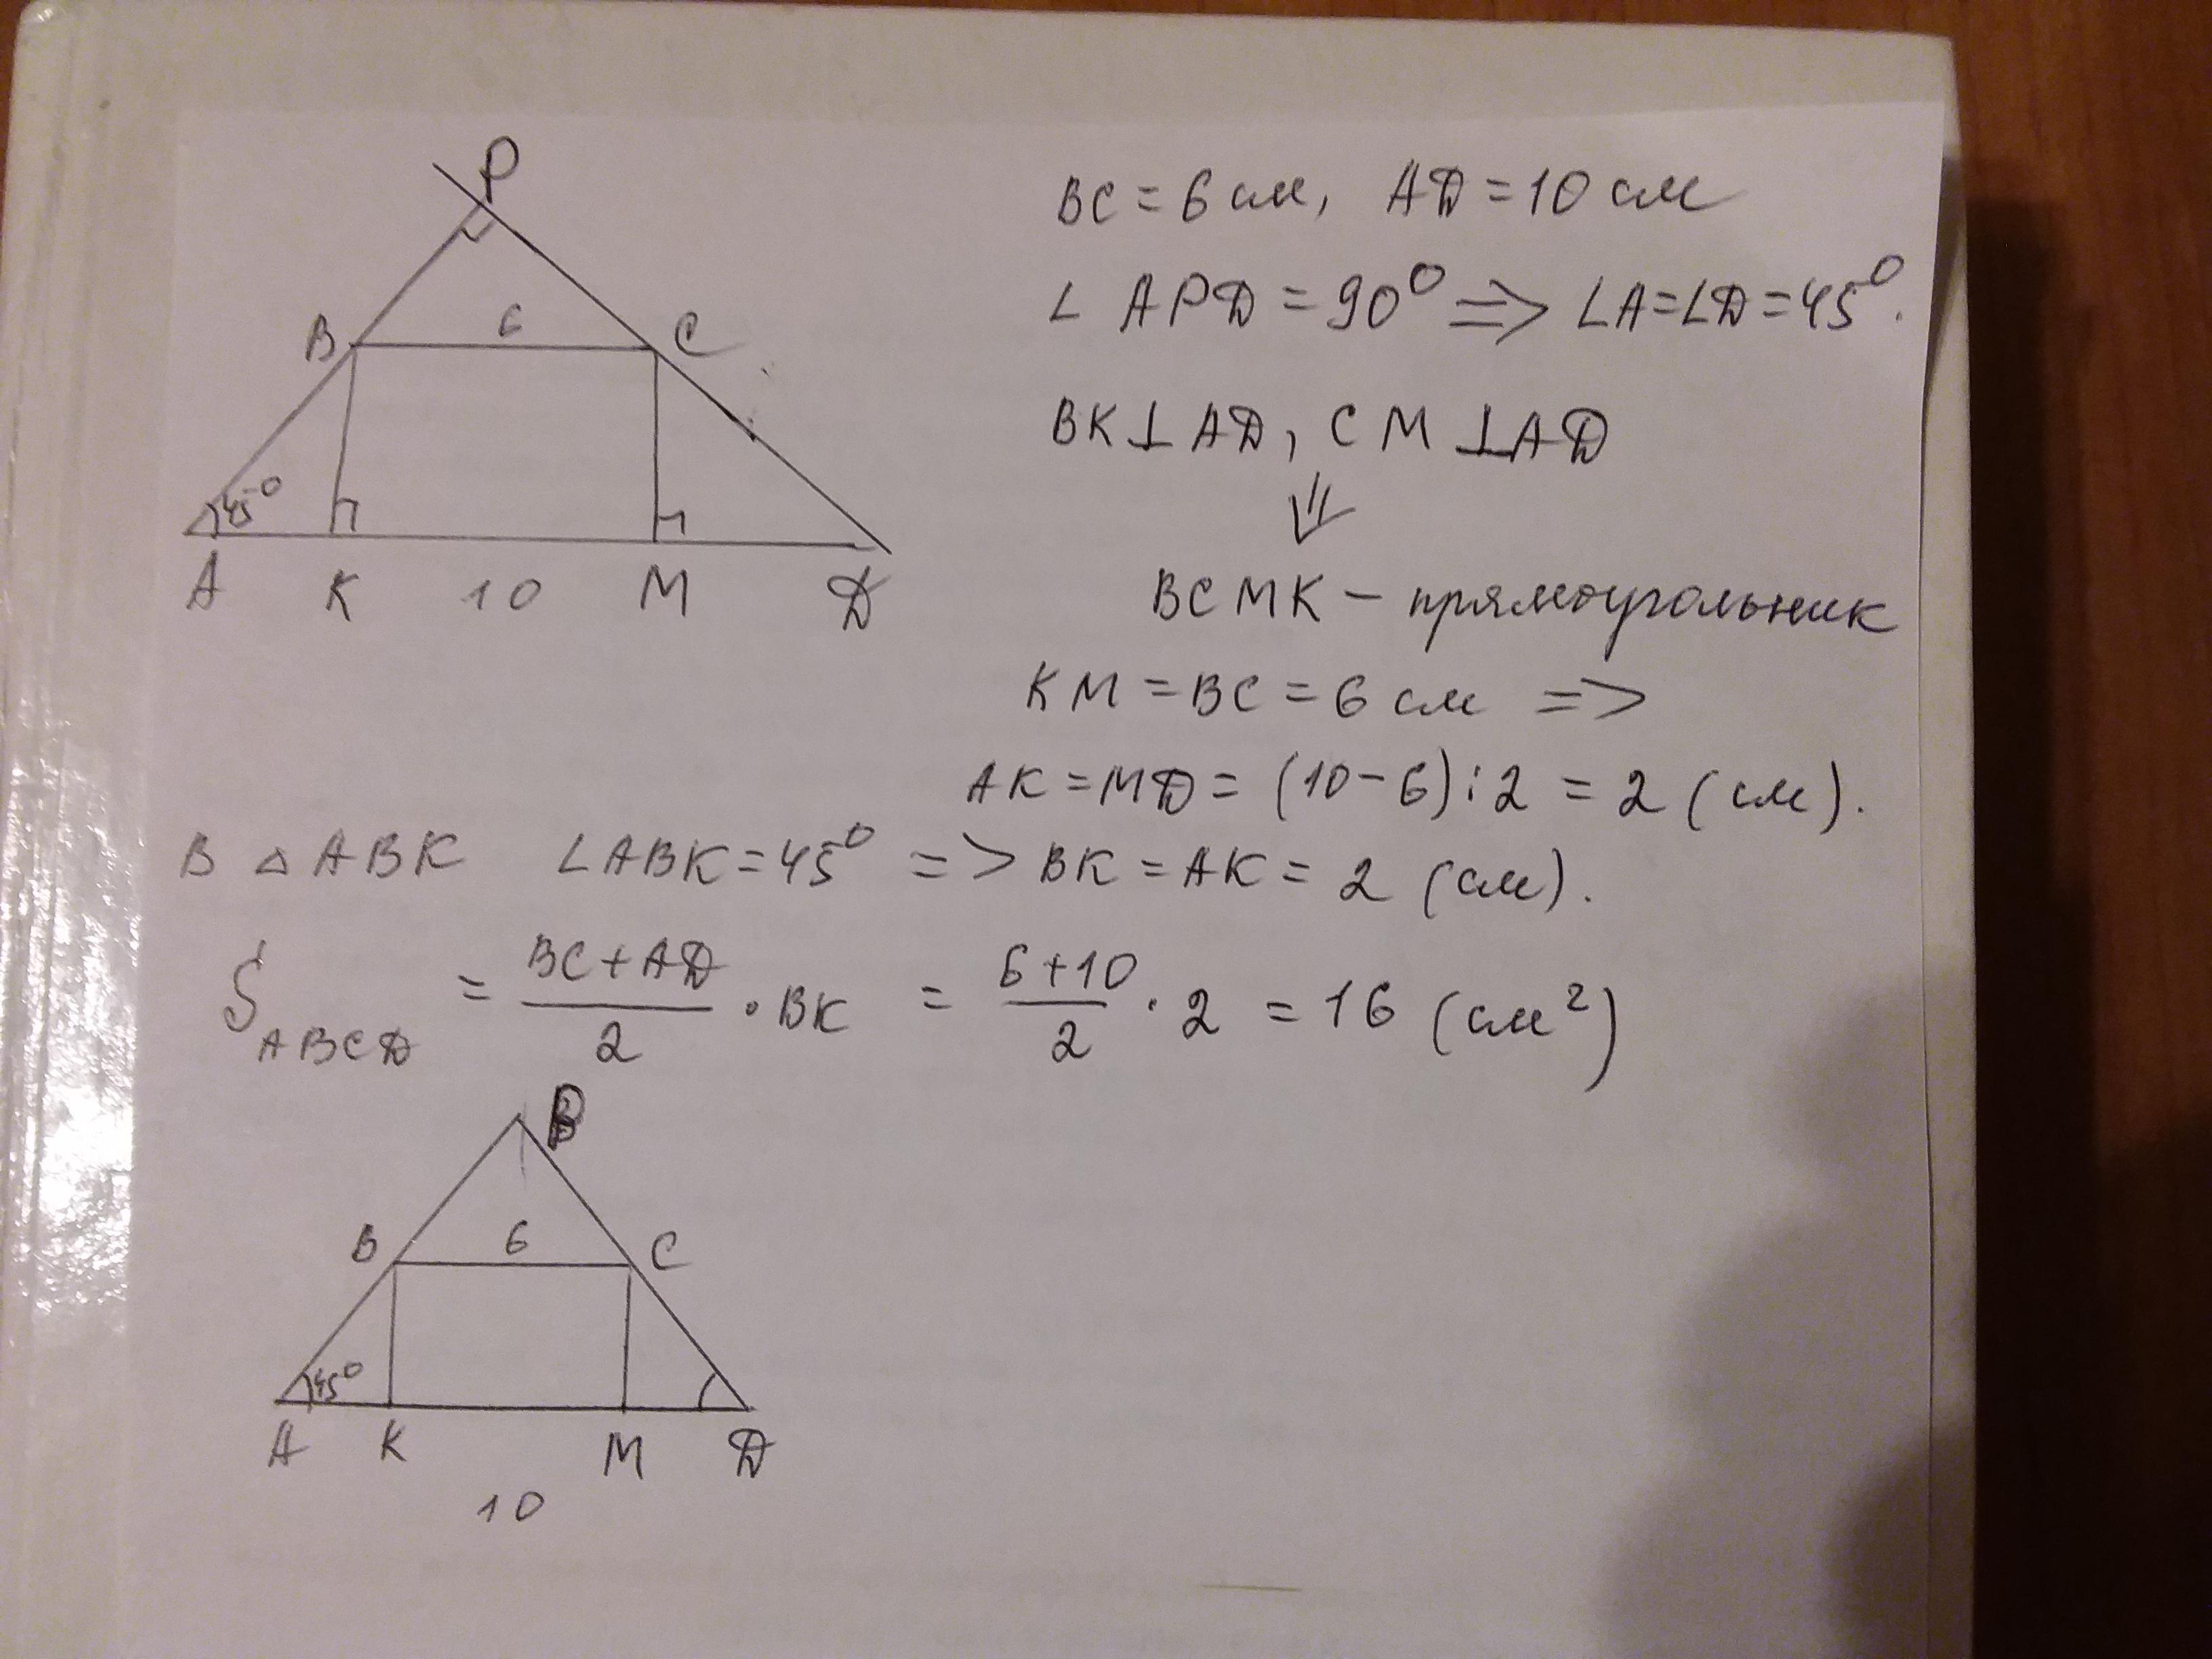 P
B 6 C
45°
A K 10 M D
BC = 6 см, AD = 10 см
∠ APD = 90° => ∠A = ∠D = 45°.
BK ⊥ AD, CM ⊥ AD
⇓
BCMK – прямоугольник
KM = BC = 6 см =>
AK = MD = (10 - 6) : 2 = 2 (см).
В △ ABK ∠ABK = 45° => BK = AK = 2 (см).
S_ABCD = (BC + AD)/2 · BK = (6 + 10)/2 · 2 = 16 (см²)
P
B 6 C
45°
A K M D
10